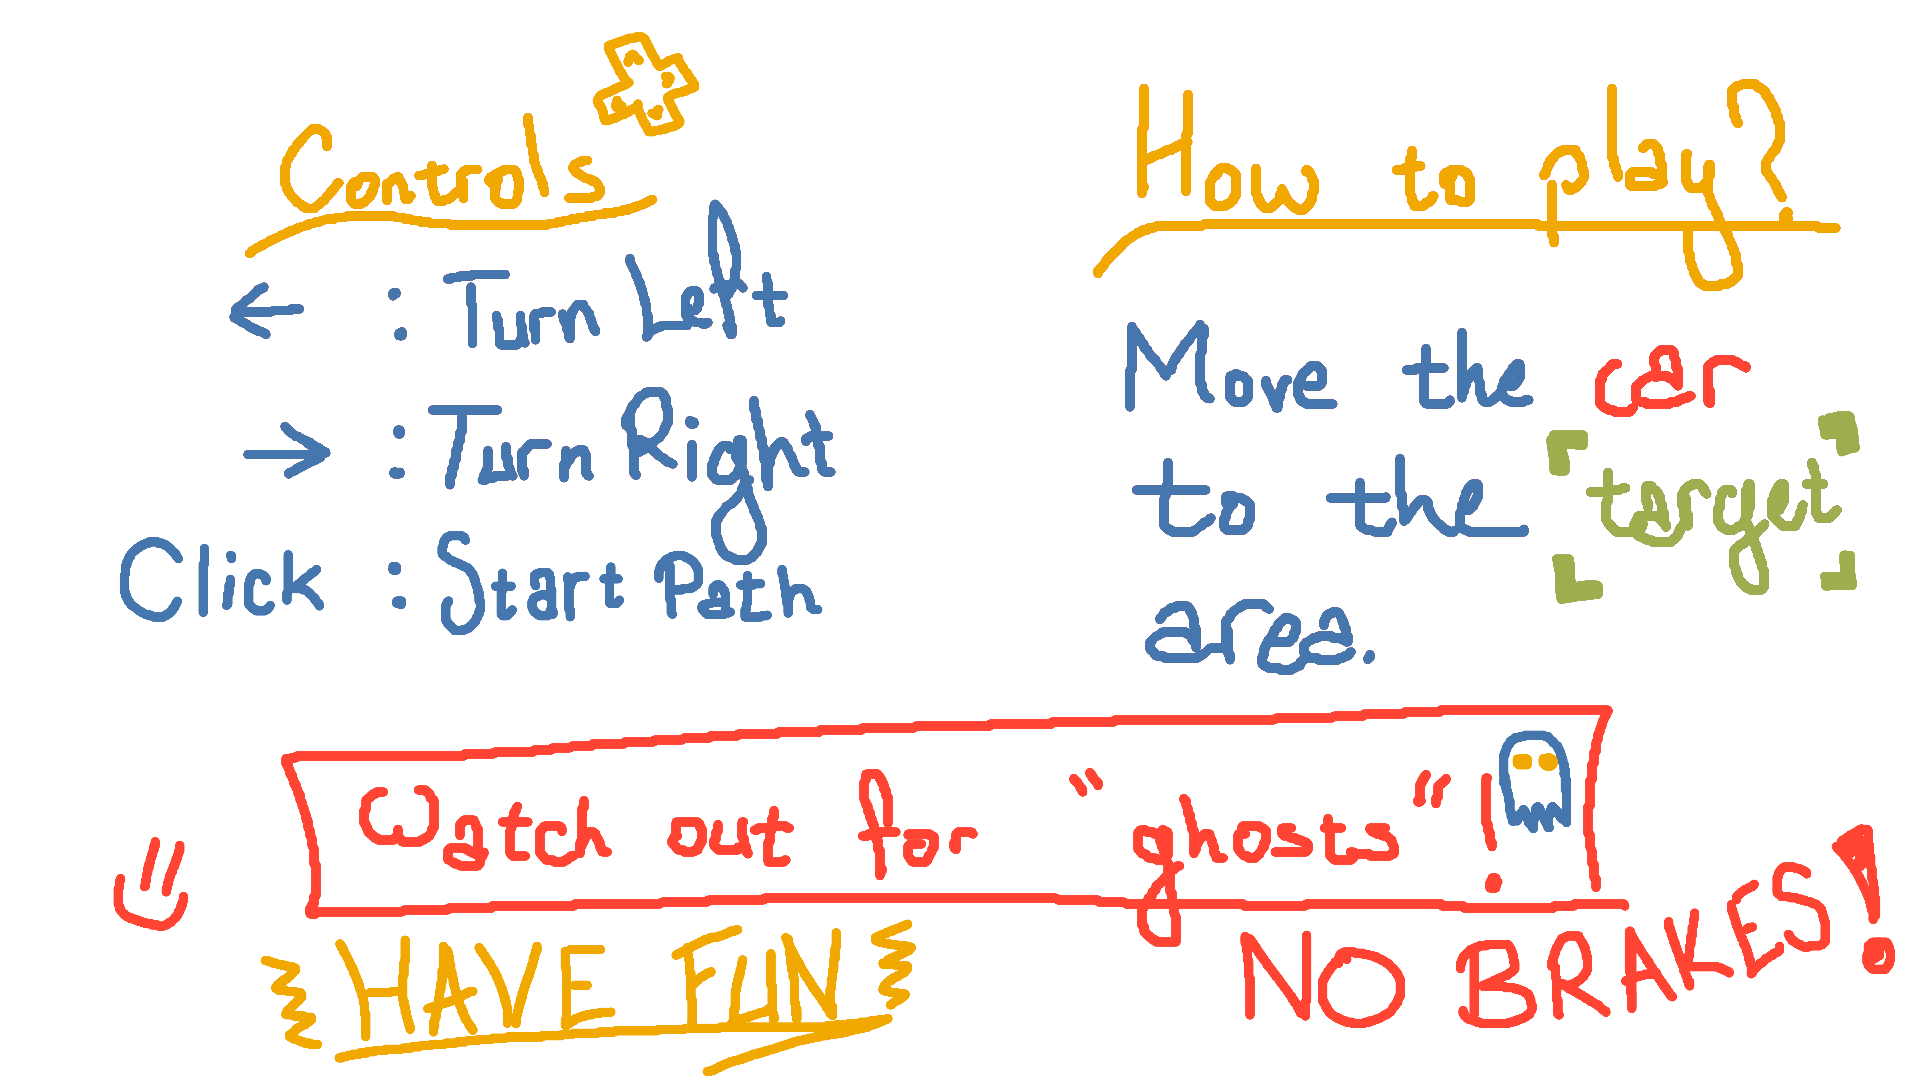 Controls
← : Turn Left
→ : Turn Right
Click : Start Path
How to play?
Move the car
to the target
area.
Watch out for "ghosts"!
HAVE FUN
NO BRAKES!